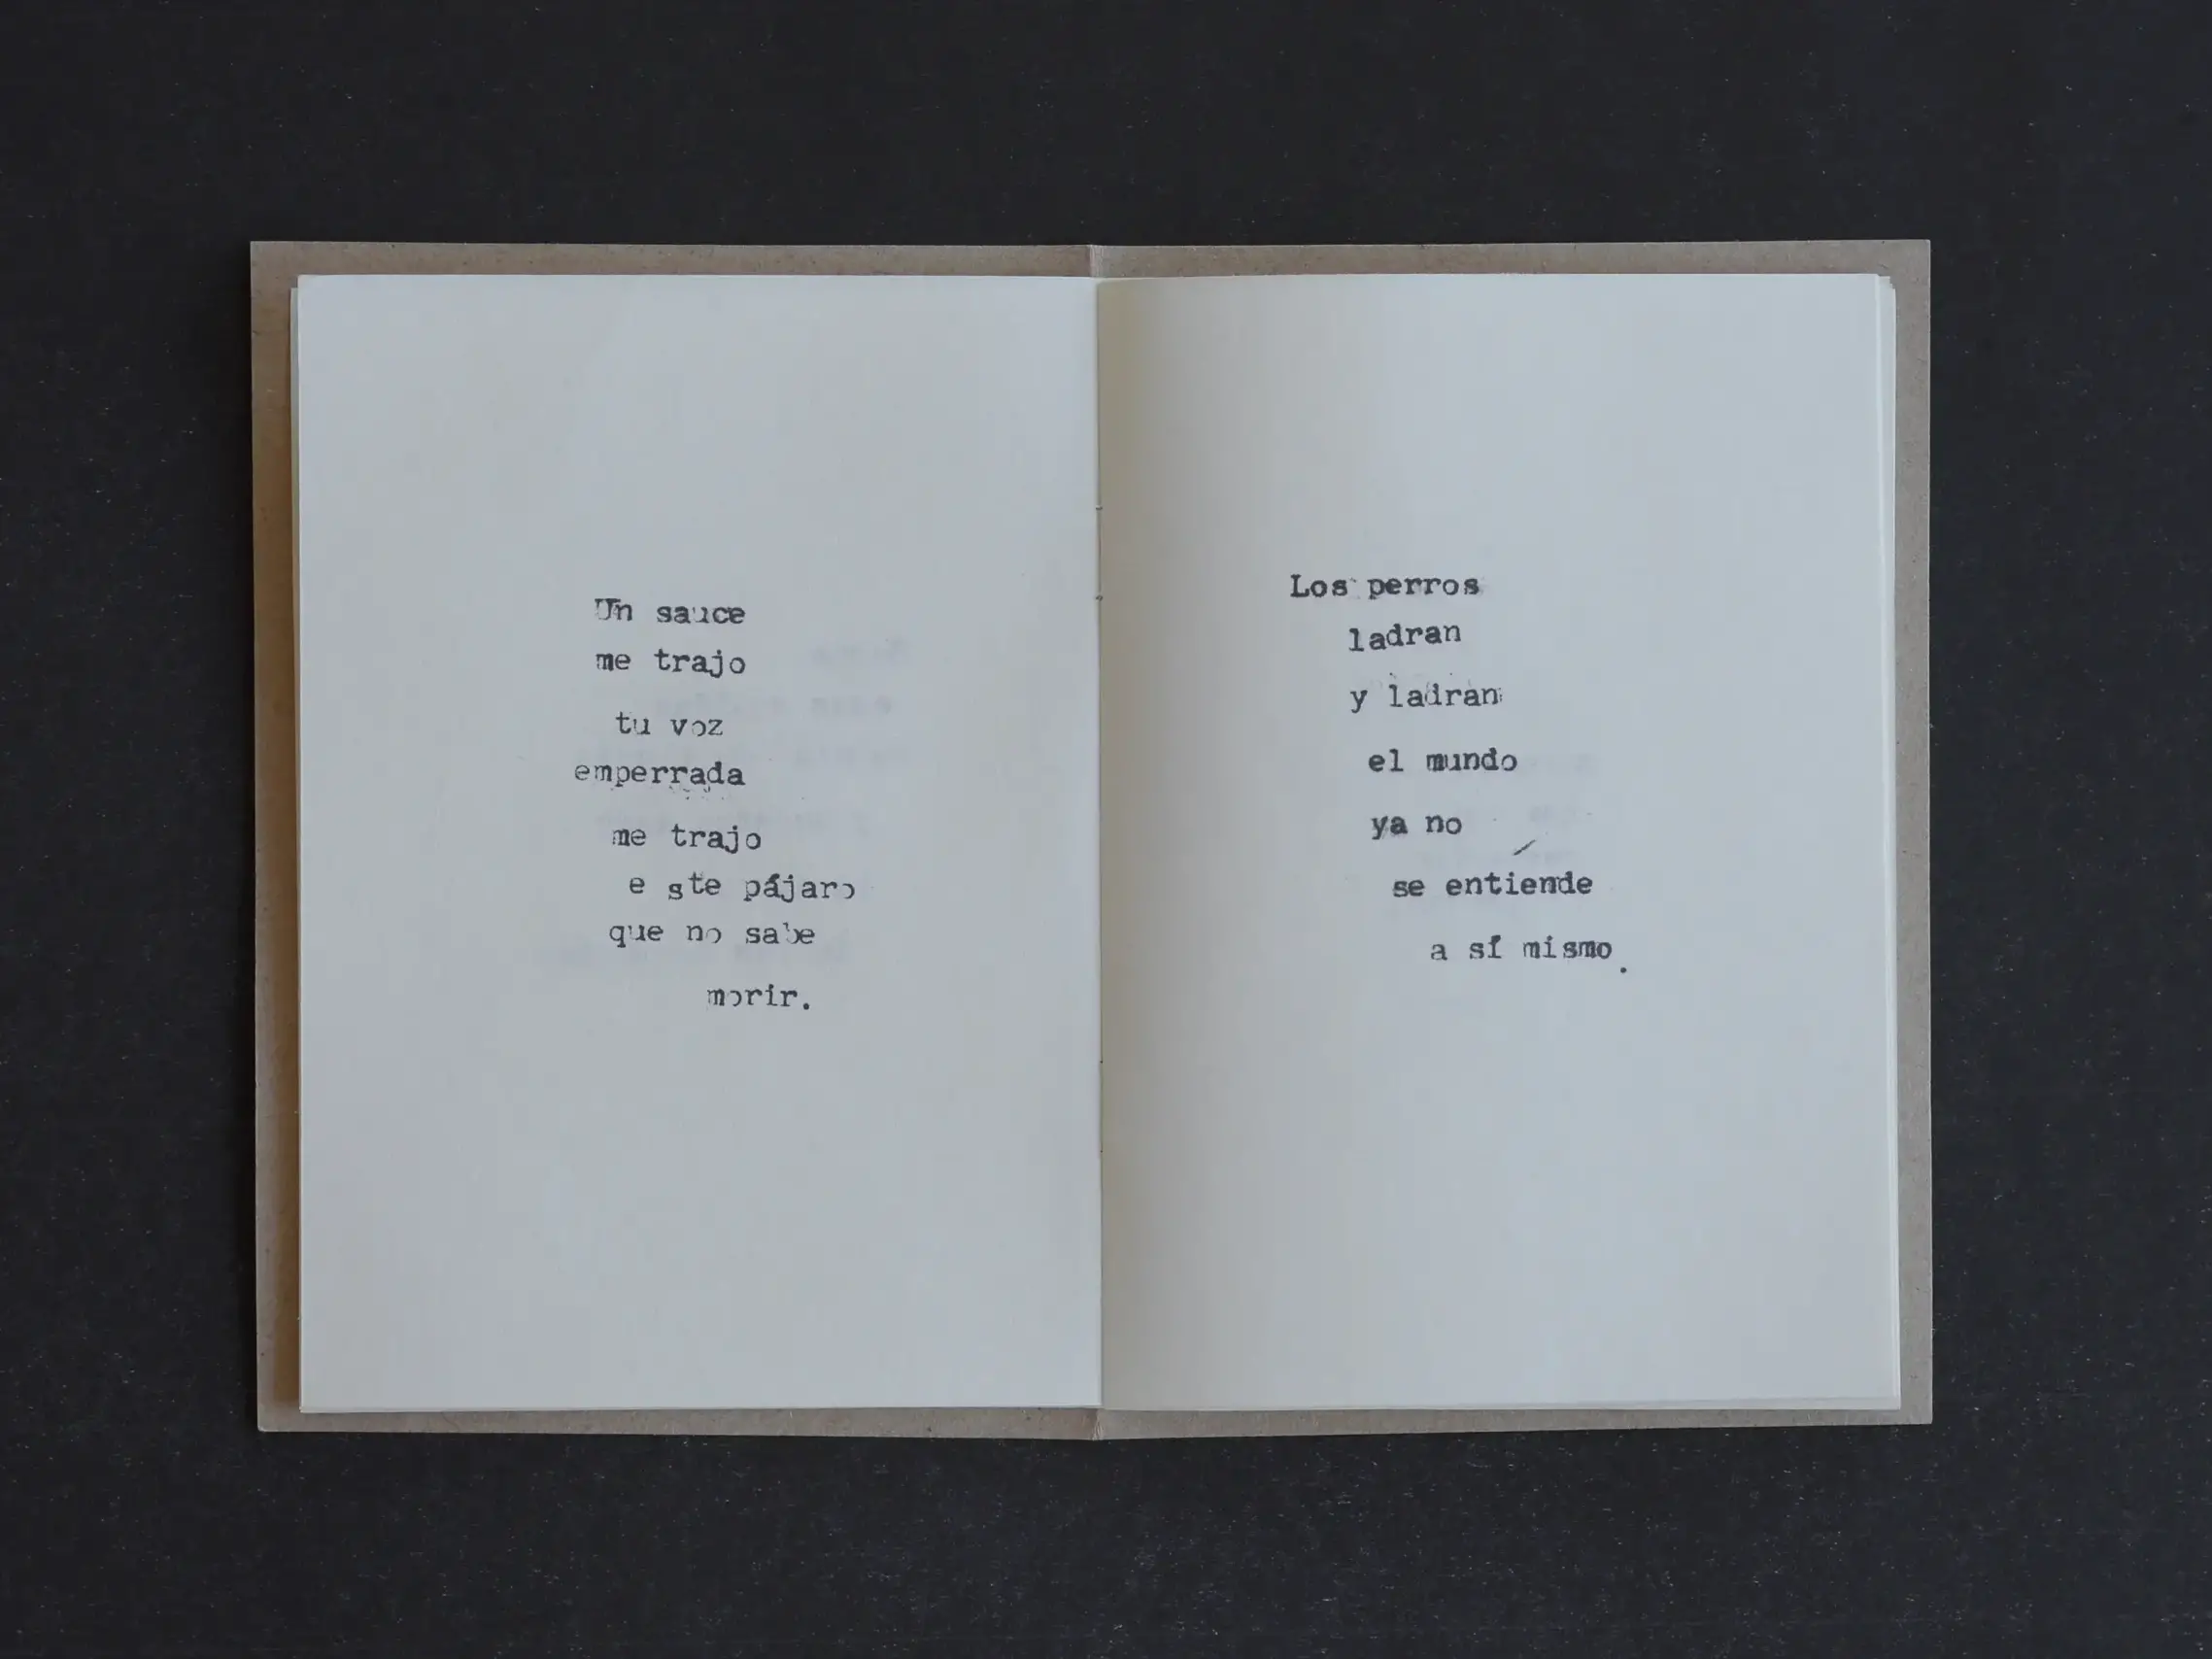 Un sauce
me trajo
tu voz
emperrada
me trajo
e ste pájaro
que no sabe
morir.
Los perros
ladran
y ladran
el mundo
ya no
se entiende
a sí mismo.